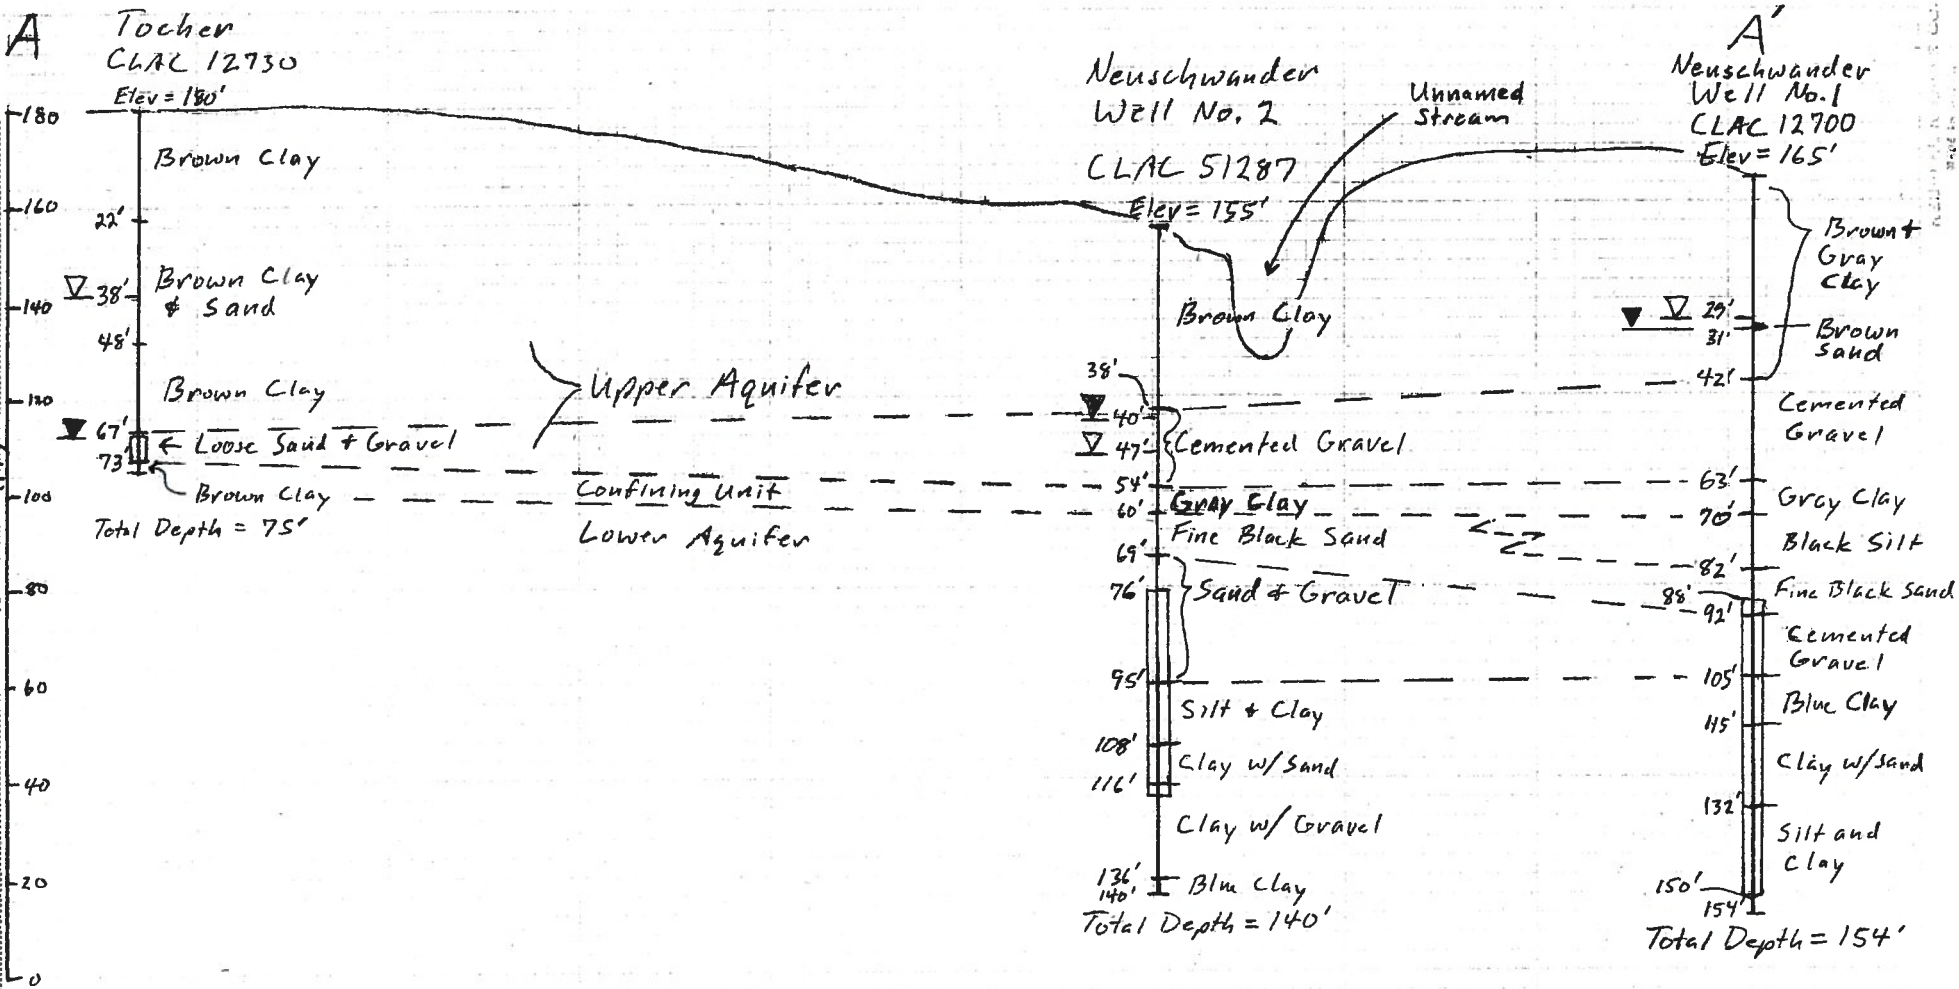 A
Tocher
CLAC 12730
Elev = 180'
180
160
140
120
100
80
60
40
20
0
Brown Clay
22'
Brown Clay
& Sand
38'
48'
Brown Clay
67'
← Loose Sand & Gravel
73'
Brown Clay
Total Depth = 75'
Upper Aquifer
Confining Unit
Lower Aquifer
Neuschwander
Well No. 2
CLAC 51287
Elev = 155'
Unnamed
Stream
Brown Clay
38'
40'
47'
Cemented Gravel
54'
Gray Clay
60'
Fine Black Sand
69'
76'
Sand & Gravel
95'
Silt & Clay
108'
Clay w/Sand
116'
Clay w/ Gravel
136'
140'
Blue Clay
Total Depth = 140'
A'
Neuschwander
Well No. 1
CLAC 12700
Elev = 165'
Brown &
Gray
Clay
29'
31'
Brown
Sand
42'
Cemented
Gravel
63'
Gray Clay
70'
Black Silt
82'
Fine Black Sand
88'
92'
Cemented
Gravel
105'
Blue Clay
115'
Clay w/sand
132'
Silt and
Clay
150'
154'
Total Depth = 154'